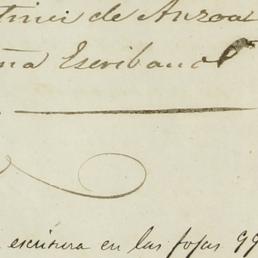 de Anzoat
Escribano
escritura en las fojas 99